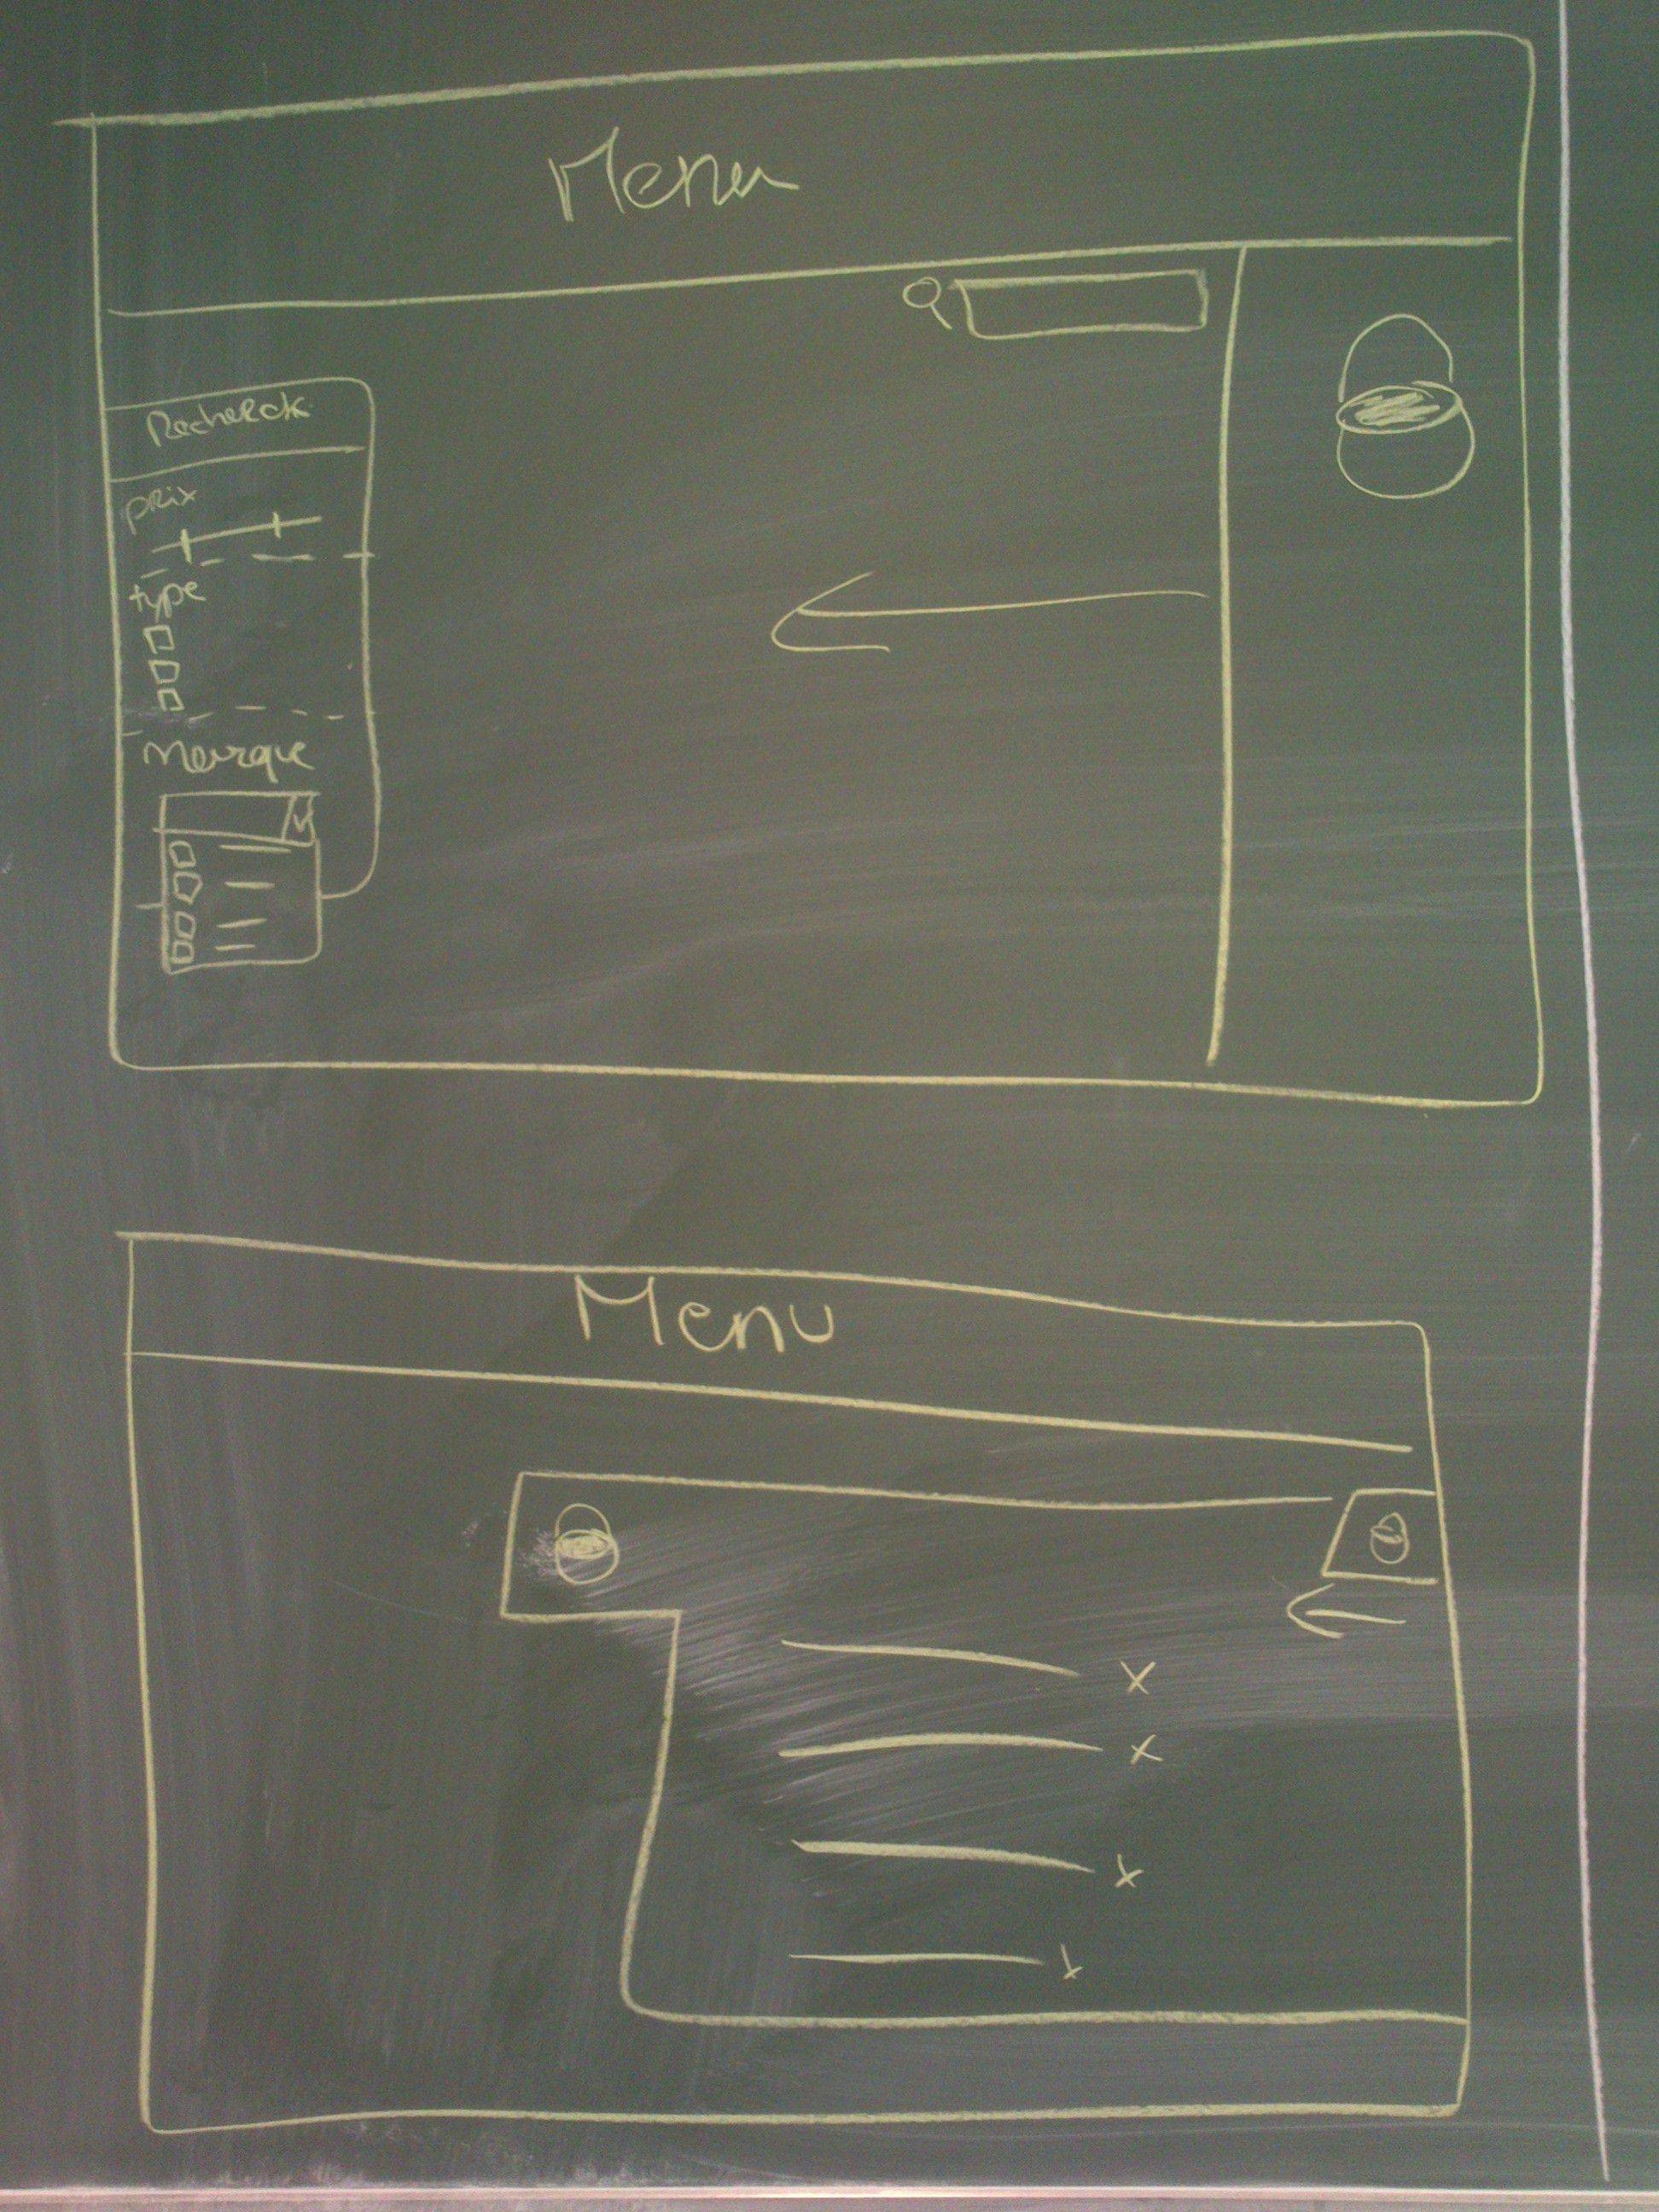 Menu
Recherche
prix
type
Marque
Menu